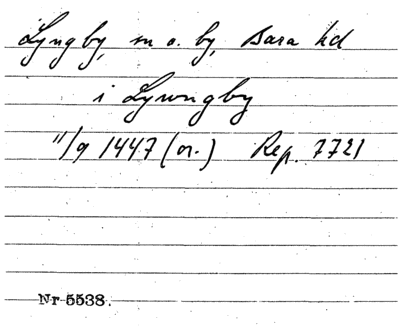 Lyngby, m o. by, Bara hd
i Lywngby
11/9 1447 (or.) Rep. 7721
Nr 5538.